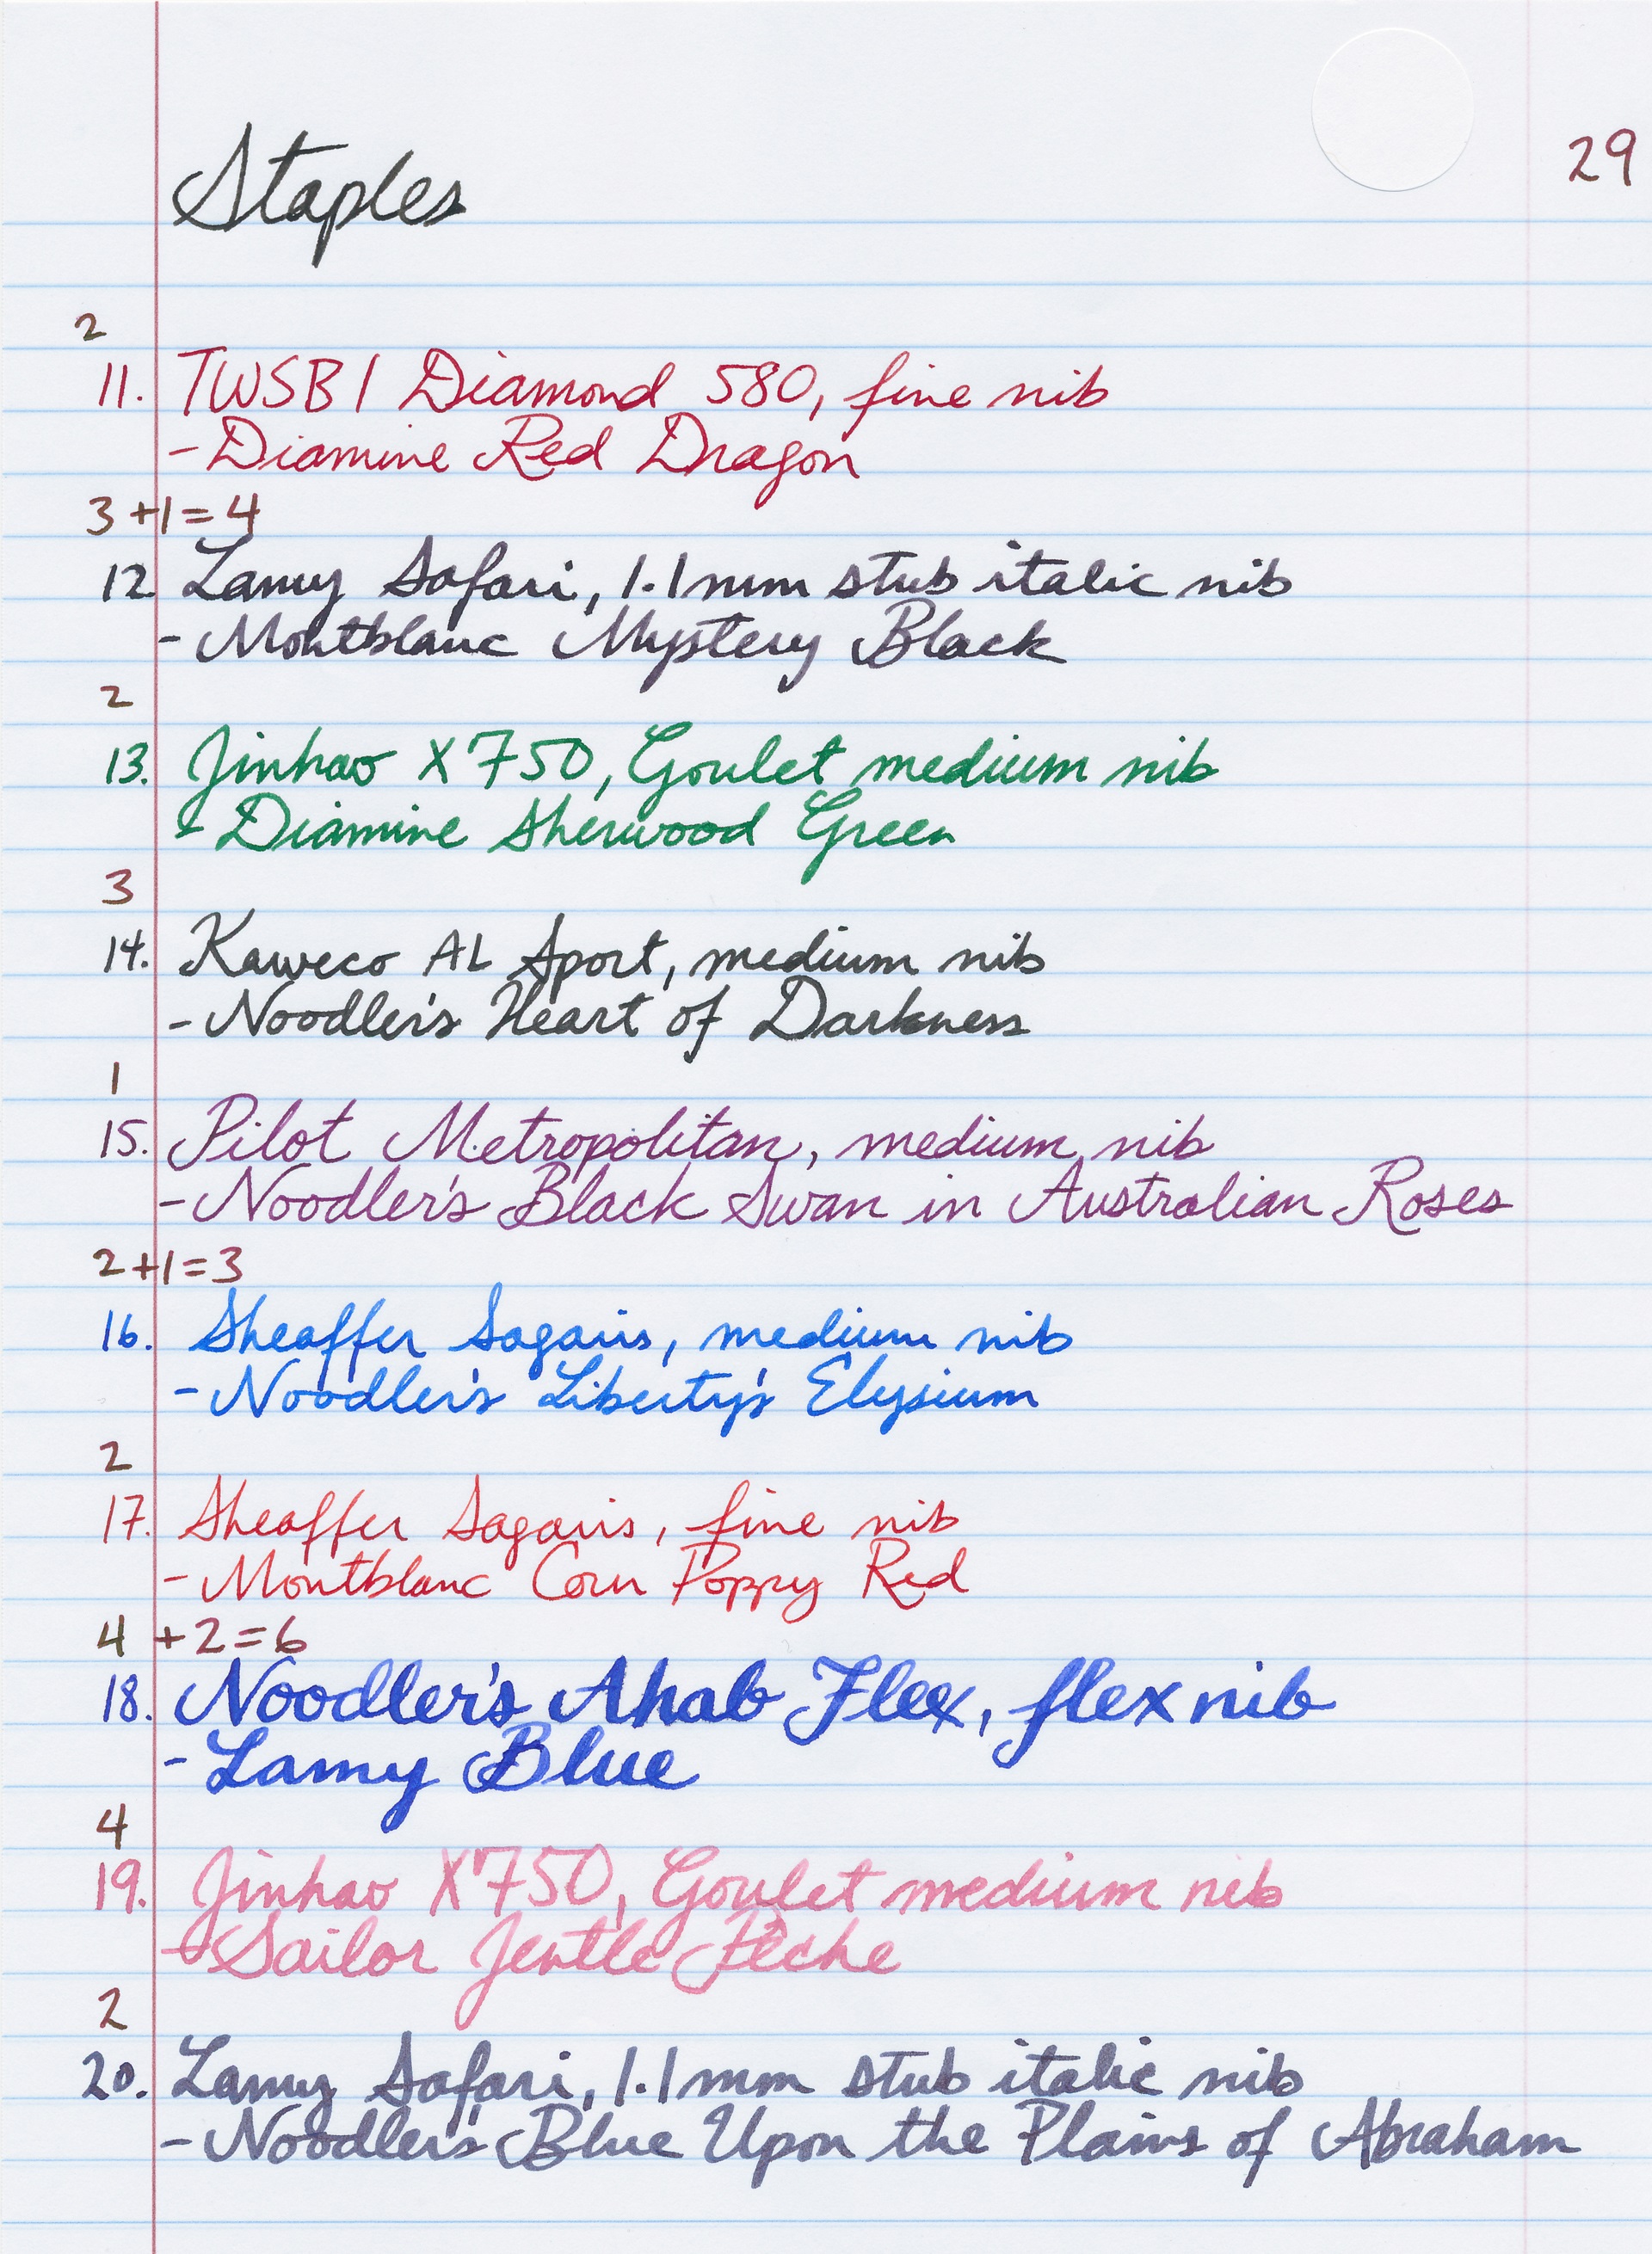 29
Staples
2
11. TWSBI Diamond 580, fine nib
- Diamine Red Dragon
3+1=4
12. Lamy Safari, 1.1mm stub italic nib
- Montblanc Mystery Black
2
13. Jinhao X750, Goulet medium nib
- Diamine Sherwood Green
3
14. Kaweco AL Sport, medium nib
- Noodler's Heart of Darkness
1
15. Pilot Metropolitan, medium nib
- Noodler's Black Swan in Australian Roses
2+1=3
16. Sheaffer Sagaris, medium nib
- Noodler's Liberty's Elysium
2
17. Sheaffer Sagaris, fine nib
- Montblanc Corn Poppy Red
4+2=6
18. Noodler's Ahab Flex, flex nib
- Lamy Blue
4
19. Jinhao X750, Goulet medium nib
- Sailor Jentle Pêche
2
20. Lamy Safari, 1.1mm stub italic nib
- Noodler's Blue Upon the Plains of Abraham